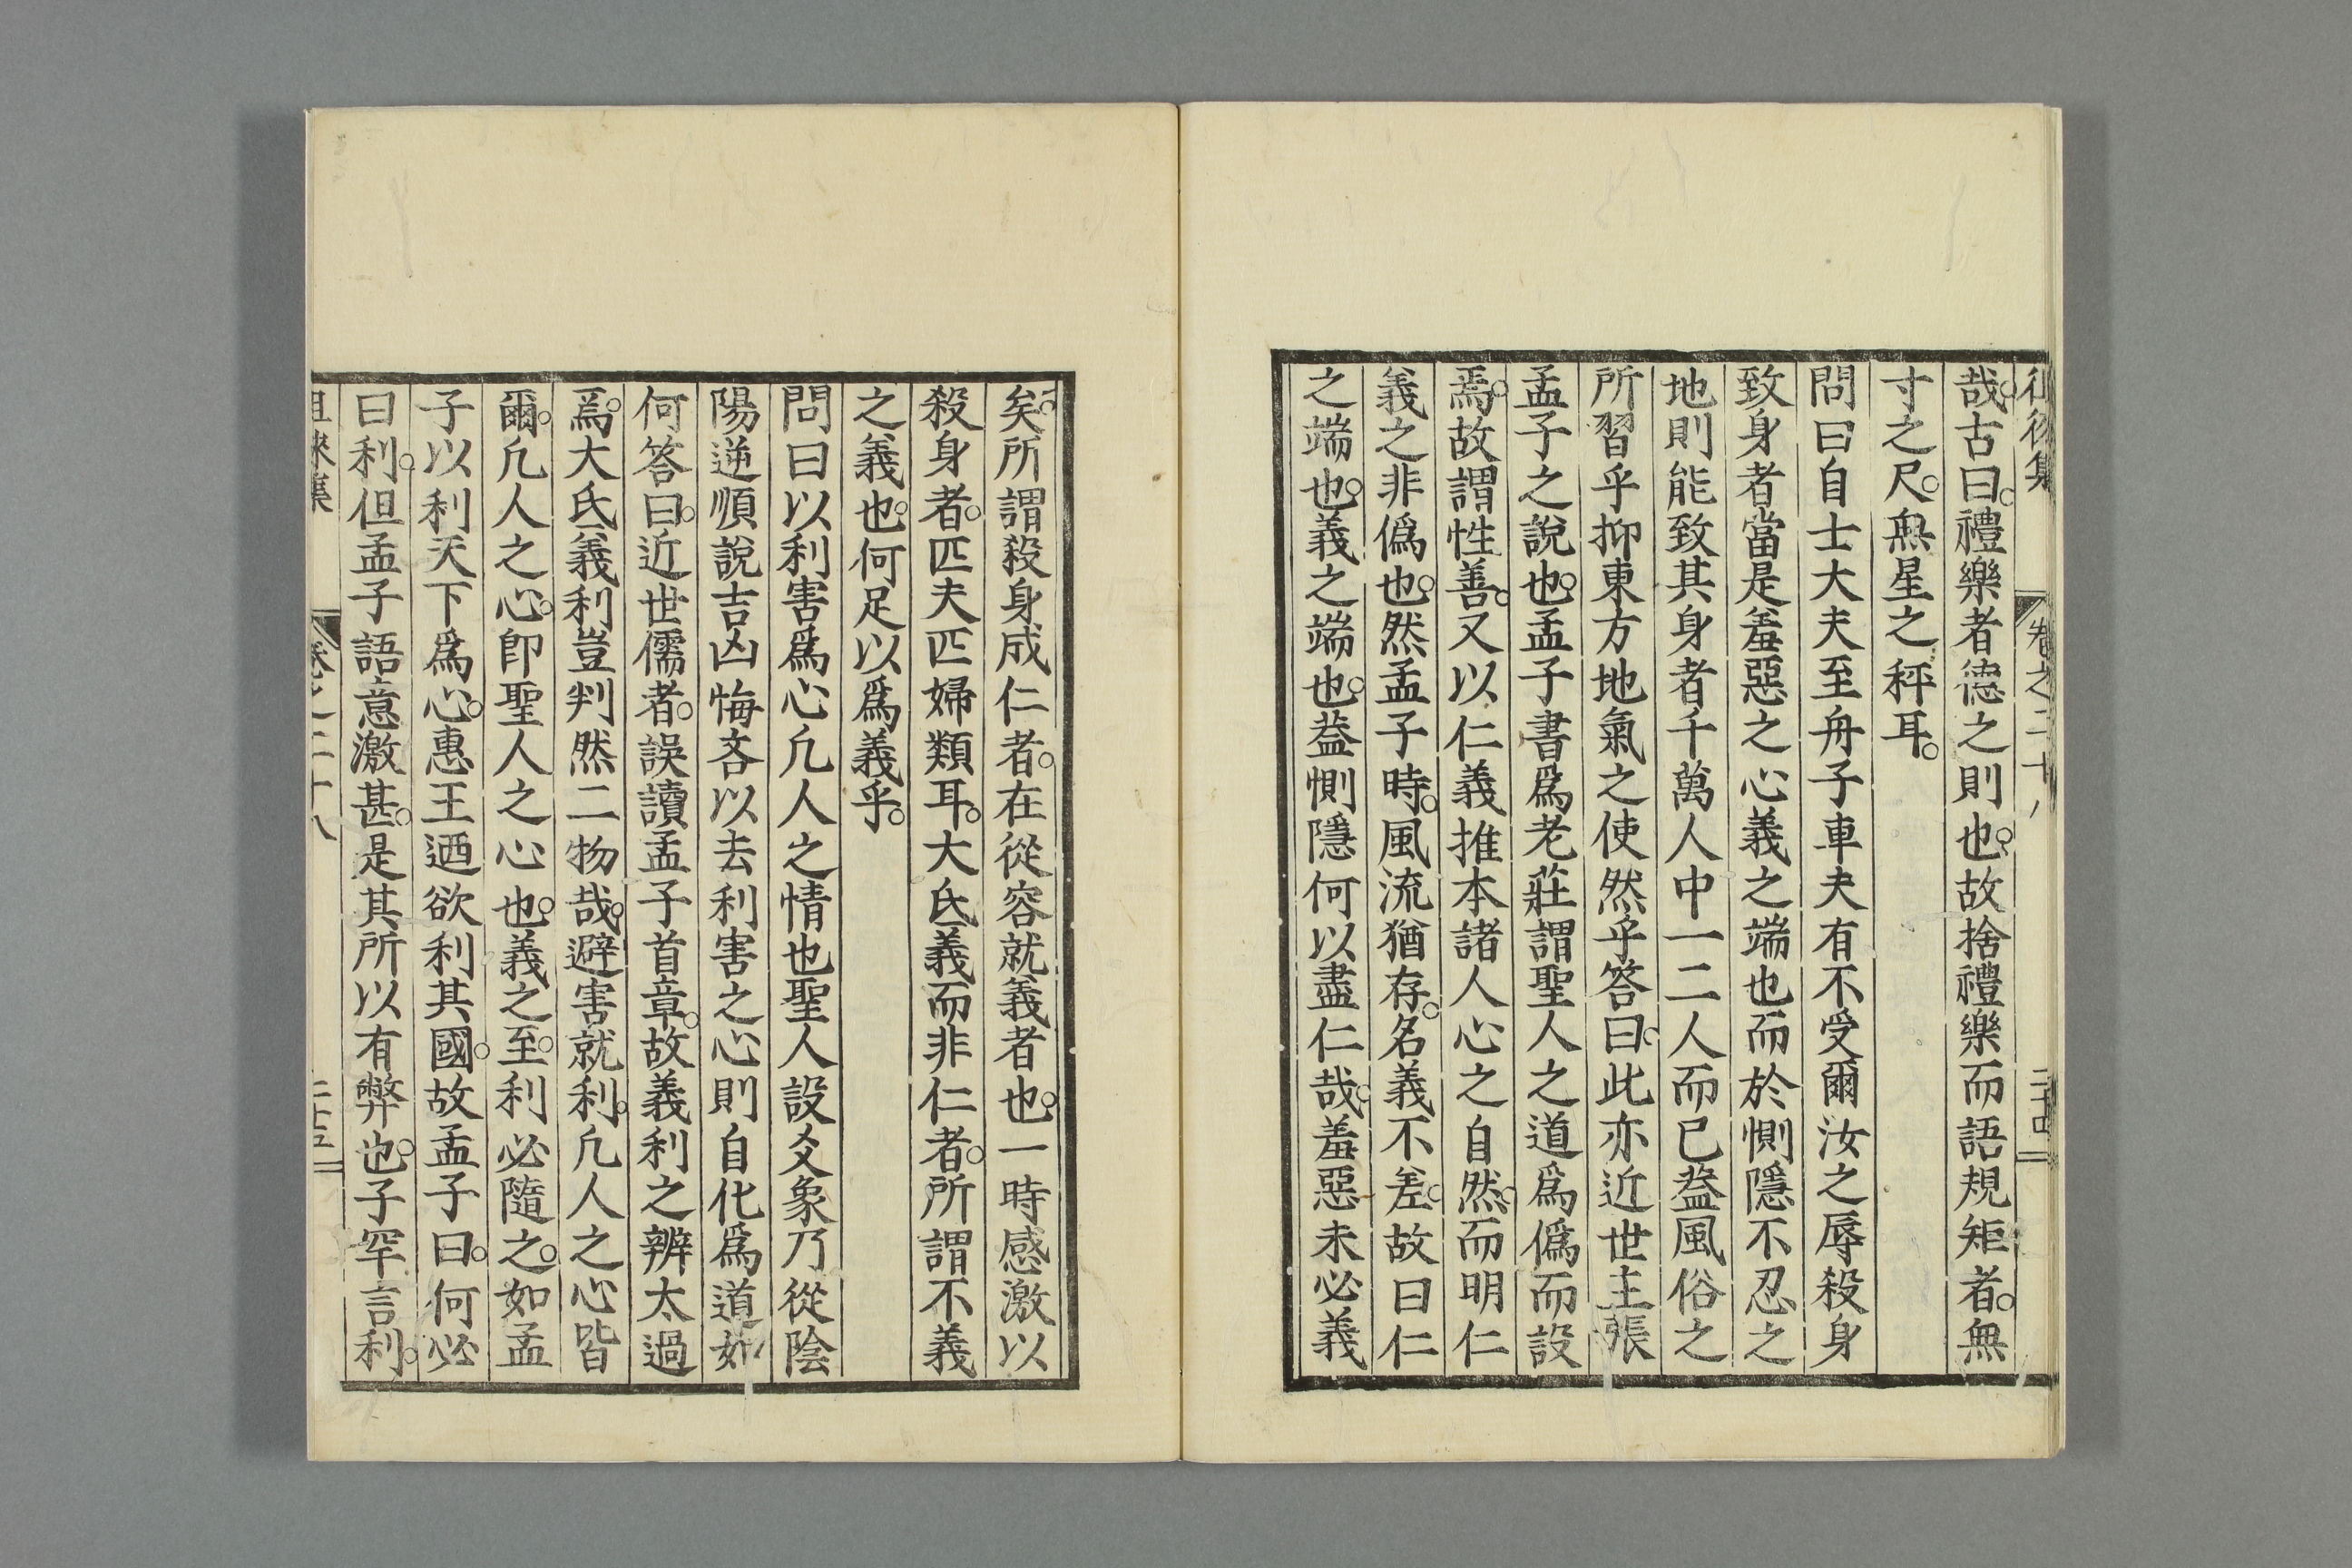 徂徠集 卷之二十八 二十四
哉。古曰。禮樂者德之則也。故捨禮樂而語規矩者。無
寸之尺。無星之秤耳。
問曰自士大夫至舟子車夫有不受爾汝之辱殺身
致身者當是羞惡之心義之端也而於惻隱不忍之
地則能致其身者千萬人中一二人而已葢風俗之
所習乎抑東方地氣之使然乎答曰。此亦近世主張
孟子之說也。孟子書爲老莊謂聖人之道爲僞而設
焉。故謂性善。又以仁義推本諸人心之自然。而明仁
義之非僞也。然孟子時。風流猶存。名義不差。故曰仁
之端也。義之端也。葢惻隱何以盡仁哉。羞惡未必義
矣。所謂殺身成仁者。在從容就義者也。一時感激以
殺身者。匹夫匹婦類耳。大氐義而非仁者。所謂不義
之義也。何足以爲義乎。
問曰以利害爲心凡人之情也聖人設爻象乃從陰
陽逆順說吉凶悔吝以去利害之心則自化爲道如
何答曰。近世儒者。誤讀孟子首章。故義利之辨太過
焉。大氐義利豈判然二物哉。避害就利。凡人之心皆
爾。凡人之心。卽聖人之心也。義之至。利必隨之。如孟
子以利天下爲心。惠王迺欲利其國。故孟子曰。何必
曰利。但孟子語意激甚。是其所以有弊也。子罕言利。
徂徠集 卷之二十八 二十五